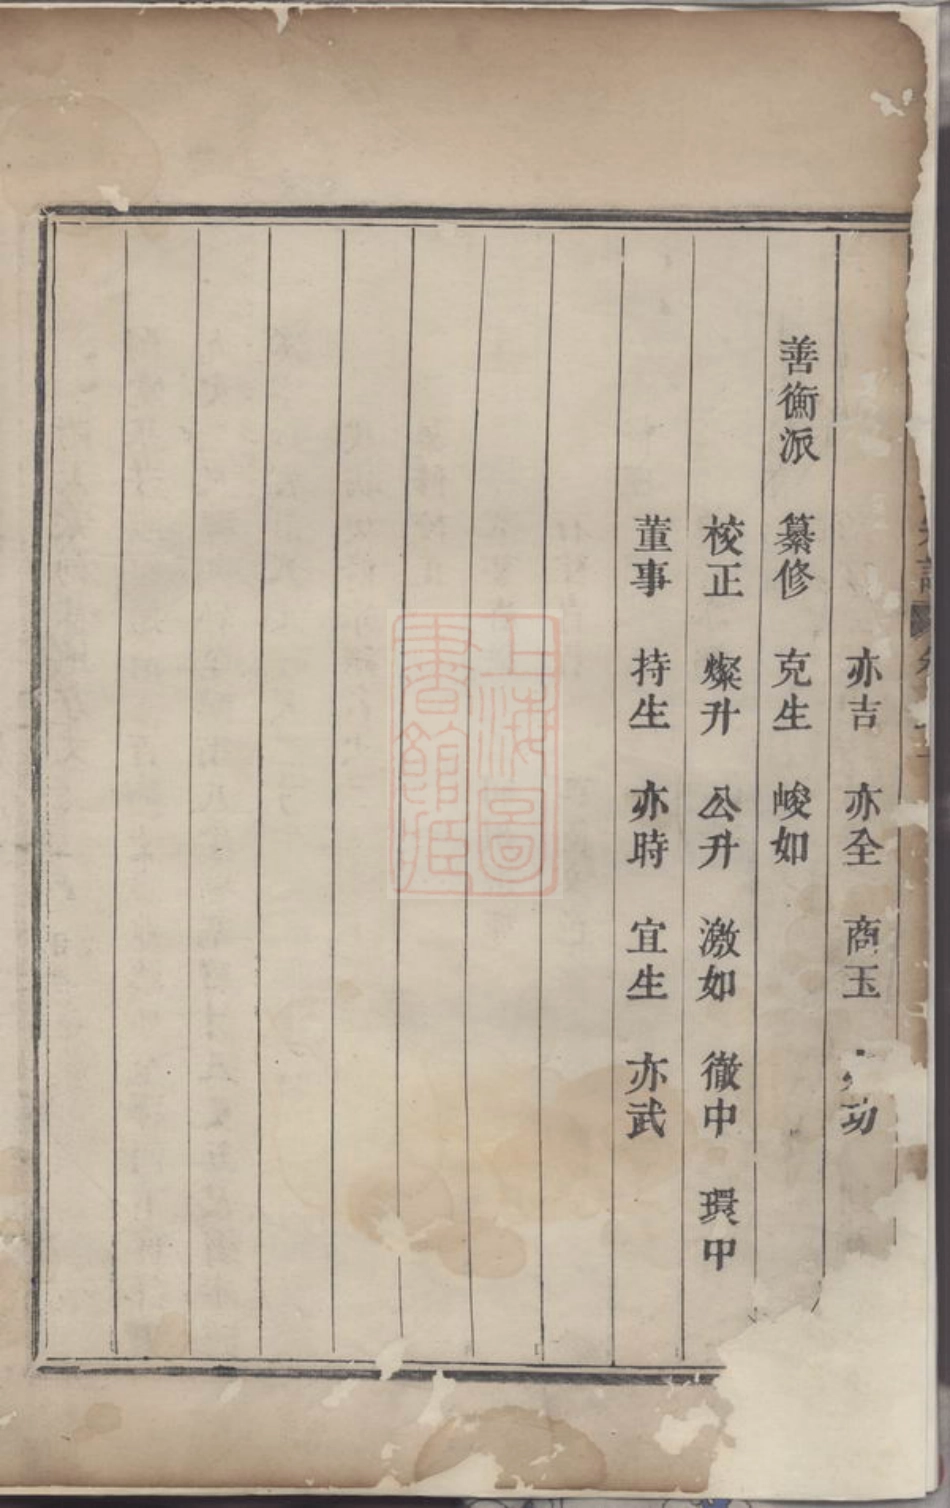 亦吉　亦全　商玉　功
善衡派　纂修　克生　峻如
校正　燦升　公升　激如　徹中　環中
董事　持生　亦時　宜生　亦武
上海圖書館藏